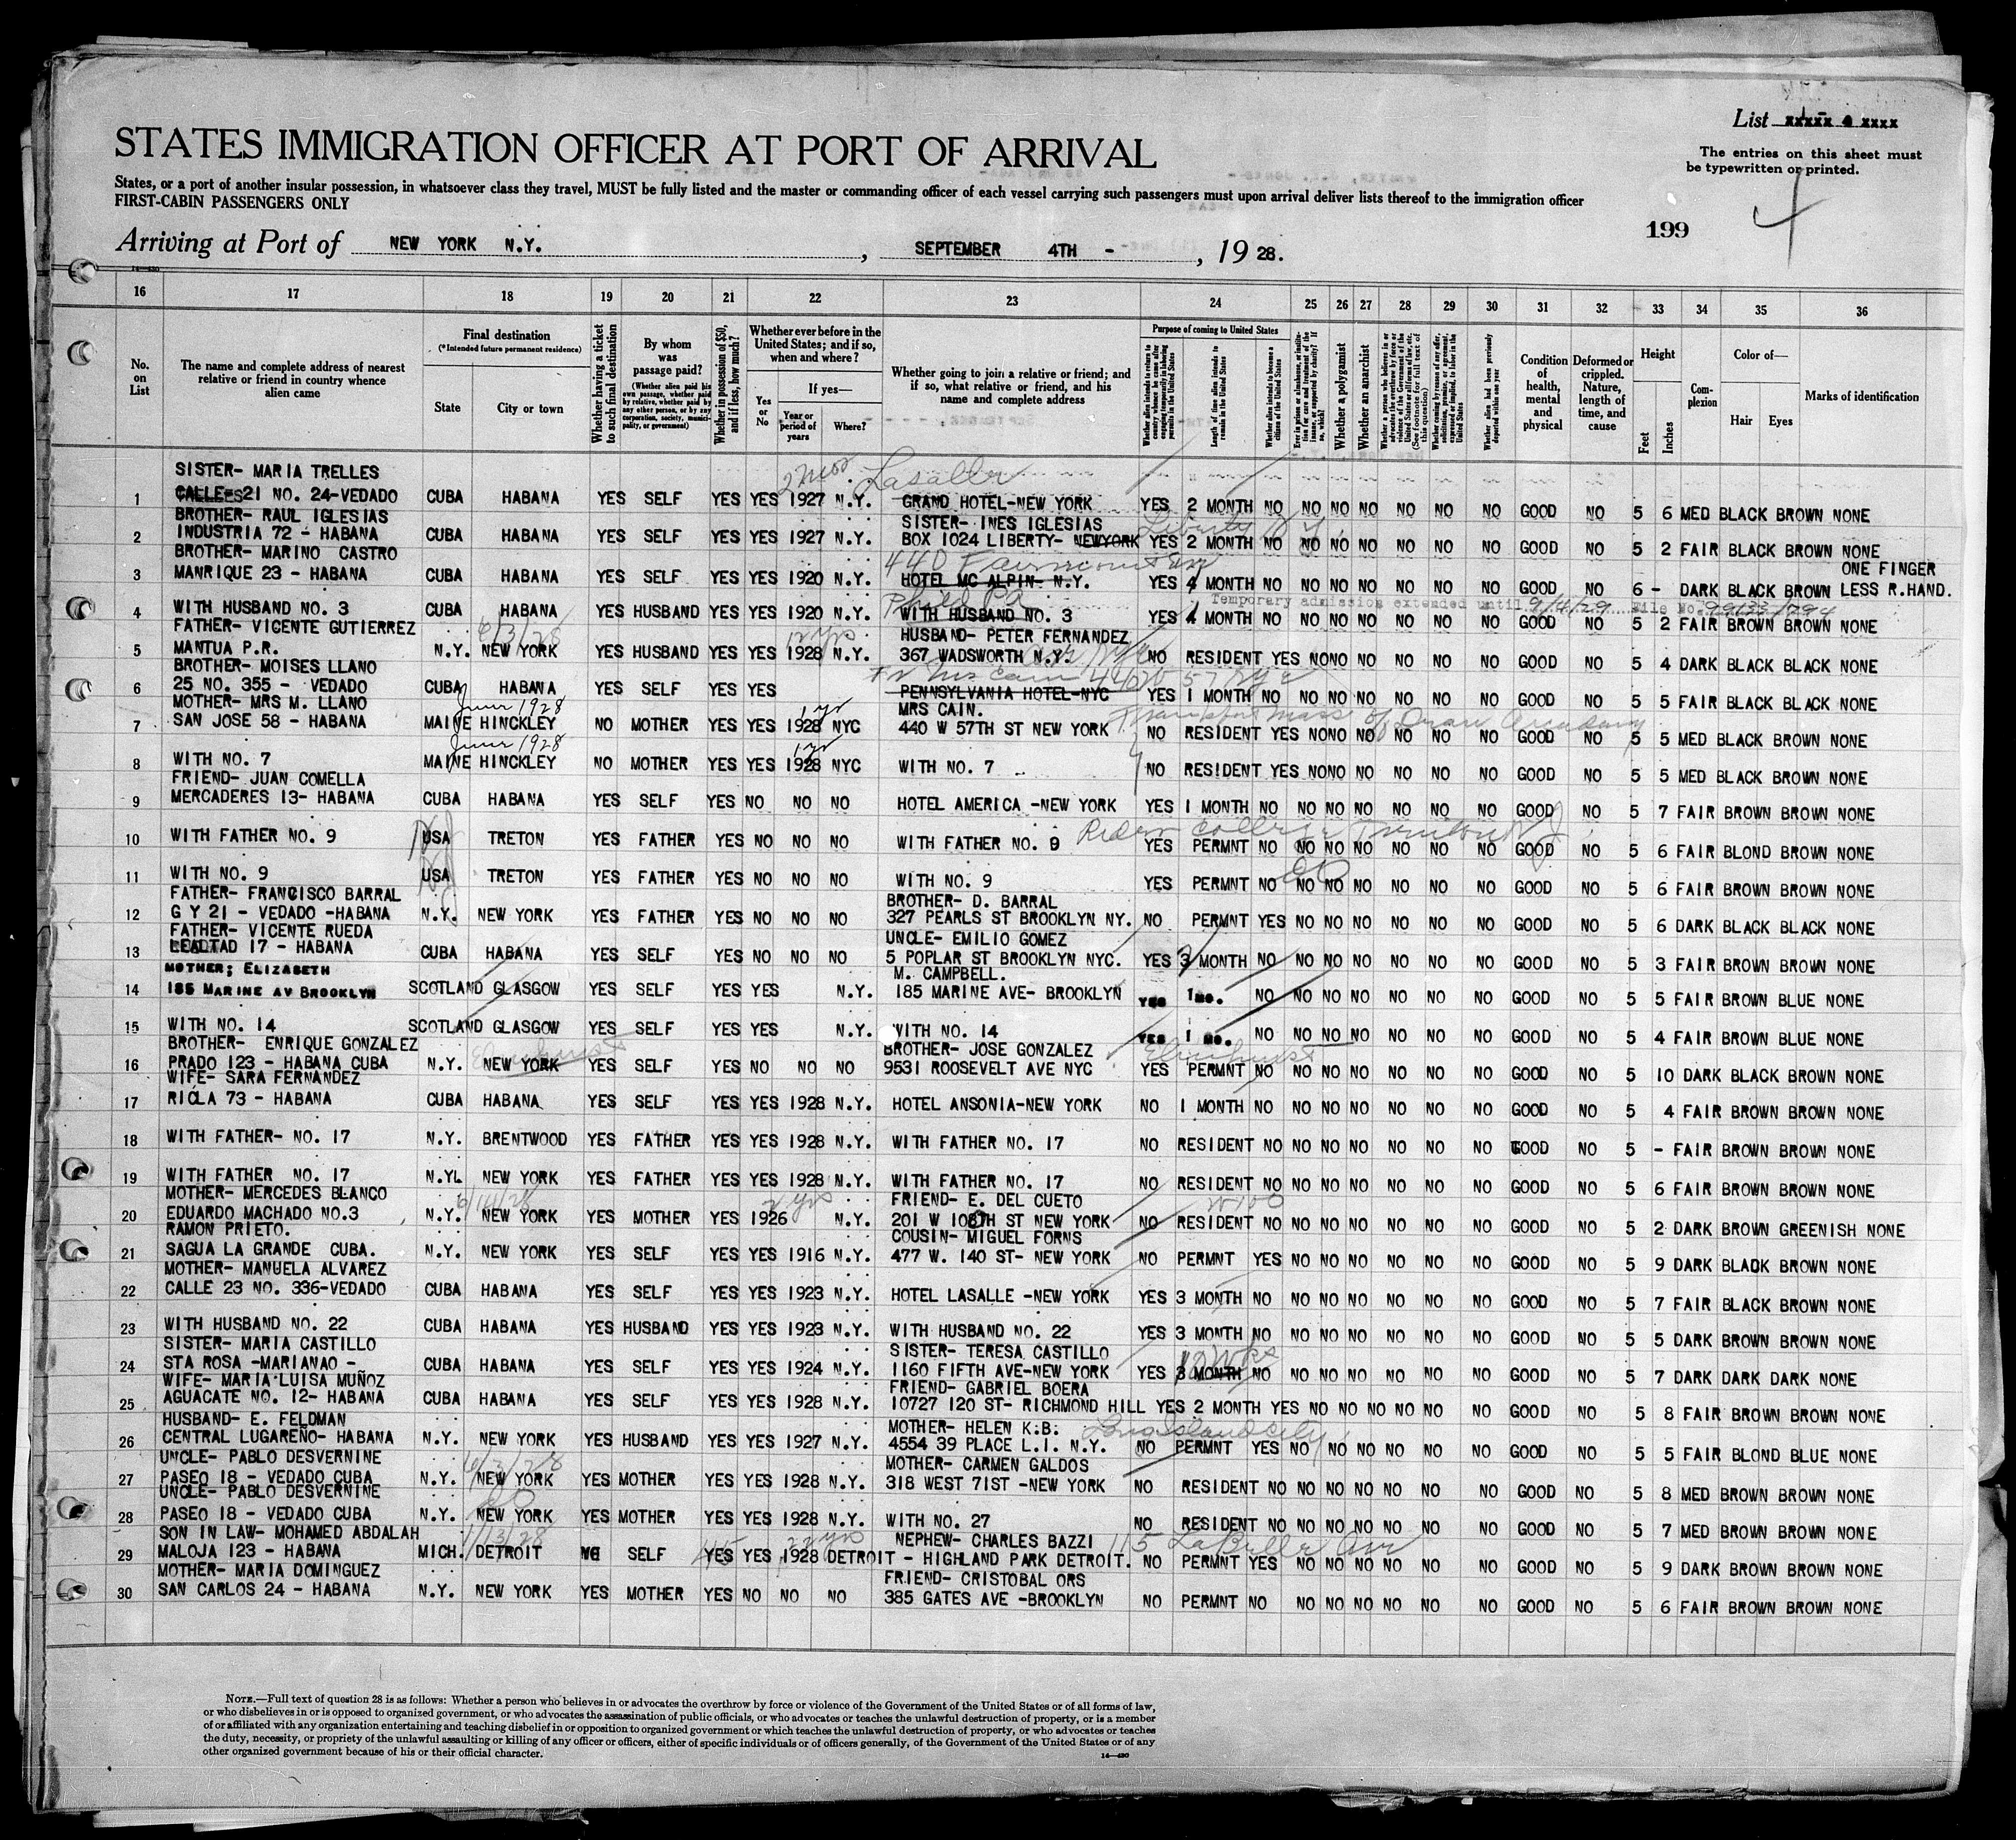 List xxxxx 4 xxxx
STATES IMMIGRATION OFFICER AT PORT OF ARRIVAL
The entries on this sheet must
be typewritten or printed.
States, or a port of another insular possession, in whatsoever class they travel, MUST be fully listed and the master or commanding officer of each vessel carrying such passengers must upon arrival deliver lists thereof to the immigration officer
FIRST-CABIN PASSENGERS ONLY
199 4
Arriving at Port of NEW YORK N.Y. , SEPTEMBER 4TH - , 19 28.
16 17 18 19 20 21 22 23 24 25 26 27 28 29 30 31 32 33 34 35 36
No. on List
The name and complete address of nearest relative or friend in country whence alien came
Final destination
(*Intended future permanent residence)
State City or town
Whether having a ticket to such final destination
By whom was passage paid?
(Whether alien paid his own passage, whether paid by relative, whether paid by any other person, or by any corporation, society, municipality, or government)
Whether in possession of $50, and if less, how much?
Whether ever before in the United States; and if so, when and where?
If yes—
Yes or No Year or period of years Where?
Whether going to join a relative or friend; and if so, what relative or friend, and his name and complete address
Purpose of coming to United States
Length of time alien intends to remain in the United States
Whether alien intends to become a citizen of the United States
Whether a polygamist
Whether an anarchist
Condition of health, mental and physical
Deformed or crippled. Nature, length of time, and cause
Height
Feet Inches
Complexion
Color of—
Hair Eyes
Marks of identification
SISTER- MARIA TRELLES 2 mos Lasalle
1 CALLE- 21 NO. 24-VEDADO CUBA HABANA YES SELF YES YES 1927 N.Y. GRAND HOTEL-NEW YORK YES 2 MONTH NO NO NO NO NO NO NO GOOD NO 5 6 MED BLACK BROWN NONE
BROTHER- RAUL IGLESIAS SISTER- INES IGLESIAS Liberty N.Y.
2 INDUSTRIA 72 - HABANA CUBA HABANA YES SELF YES YES 1927 N.Y. BOX 1024 LIBERTY- NEWYORK YES 2 MONTH NO NO NO NO NO NO NO GOOD NO 5 2 FAIR BLACK BROWN NONE
BROTHER- MARINO CASTRO 440 Fairmount Ave ONE FINGER
3 MANRIQUE 23 - HABANA CUBA HABANA YES SELF YES YES 1920 N.Y. HOTEL MC ALPIN- N.Y. YES 4 MONTH NO NO NO NO NO NO NO GOOD NO 6 - DARK BLACK BROWN LESS R.HAND.
Phila Pa Temporary admission extended until 9/4/29 File No. 99133/794
4 WITH HUSBAND NO. 3 CUBA HABANA YES HUSBAND YES YES 1920 N.Y. WITH HUSBAND NO. 3 YES 4 MONTH NO NO NO NO NO NO NO GOOD NO 5 2 FAIR BROWN BROWN NONE
FATHER- VICENTE GUTIERREZ 6/3/28 12 yrs HUSBAND- PETER FERNANDEZ
5 MANTUA P.R. N.Y. NEW YORK YES HUSBAND YES YES 1928 N.Y. 367 WADSWORTH N.Y. NO RESIDENT YES NO NO NO NO NO NO GOOD NO 5 4 DARK BLACK BLACK NONE
BROTHER- MOISES LLANO Fr Mrs Cain 440 W 57 Nyc
6 25 NO. 355 - VEDADO CUBA HABANA YES SELF YES YES PENNSYLVANIA HOTEL-NYC YES 1 MONTH NO NO NO NO NO NO NO GOOD NO 5 5 FAIR BLACK BLACK NONE
MOTHER- MRS M. LLANO June 1928 1 yr MRS CAIN.
7 SAN JOSE 58 - HABANA MAINE HINCKLEY NO MOTHER YES YES 1928 NYC 440 W 57TH ST NEW YORK NO RESIDENT YES NO NO NO NO NO NO GOOD NO 5 5 MED BLACK BROWN NONE
June 1928 1 yr
8 WITH NO. 7 MAINE HINCKLEY NO MOTHER YES YES 1928 NYC WITH NO. 7 NO RESIDENT YES NO NO NO NO NO NO GOOD NO 5 5 MED BLACK BROWN NONE
FRIEND- JUAN COMELLA
9 MERCADERES 13- HABANA CUBA HABANA YES SELF YES NO NO NO HOTEL AMERICA -NEW YORK YES 1 MONTH NO NO NO NO NO NO NO GOOD NO 5 7 FAIR BROWN BROWN NONE
Rider College Trenton NJ
10 WITH FATHER NO. 9 NJ USA TRETON YES FATHER YES NO NO NO WITH FATHER NO. 9 YES PERMNT NO NO NO NO NO NO NO GOOD NO 5 6 FAIR BLOND BROWN NONE
11 WITH NO. 9 NJ USA TRETON YES FATHER YES NO NO NO WITH NO. 9 YES PERMNT NO do NO NO NO NO NO NO GOOD NO 5 6 FAIR BROWN BROWN NONE
FATHER- FRANCISCO BARRAL BROTHER- D. BARRAL
12 G Y 21 - VEDADO -HABANA N.Y. NEW YORK YES FATHER YES NO NO NO 327 PEARLS ST BROOKLYN NY. NO PERMNT YES NO NO NO NO NO NO GOOD NO 5 6 DARK BLACK BLACK NONE
FATHER- VICENTE RUEDA UNCLE- EMILIO GOMEZ
13 LEALTAD 17 - HABANA CUBA HABANA YES SELF YES NO NO NO 5 POPLAR ST BROOKLYN NYC. YES 3 MONTH NO NO NO NO NO NO NO GOOD NO 5 3 FAIR BROWN BROWN NONE
MOTHER; ELIZABETH M. CAMPBELL.
14 185 MARINE AV BROOKLYN SCOTLAND GLASGOW YES SELF YES YES N.Y. 185 MARINE AVE- BROOKLYN YES 1MO. NO NO NO NO NO NO NO GOOD NO 5 5 FAIR BROWN BLUE NONE
15 WITH NO. 14 SCOTLAND GLASGOW YES SELF YES YES N.Y. WITH NO. 14 YES 1 MO. NO NO NO NO NO NO NO GOOD NO 5 4 FAIR BROWN BLUE NONE
BROTHER- ENRIQUE GONZALEZ Elmhurst BROTHER- JOSE GONZALEZ Elmhurst
16 PRADO 123 - HABANA CUBA N.Y. NEW YORK YES SELF YES NO NO NO 9531 ROOSEVELT AVE NYC YES PERMNT NO NO NO NO NO NO NO GOOD NO 5 10 DARK BLACK BROWN NONE
WIFE- SARA FERNANDEZ
17 RICLA 73 - HABANA CUBA HABANA YES SELF YES YES 1928 N.Y. HOTEL ANSONIA-NEW YORK NO 1 MONTH NO NO NO NO NO NO NO GOOD NO 5 4 FAIR BROWN BROWN NONE
18 WITH FATHER- NO. 17 N.Y. BRENTWOOD YES FATHER YES YES 1928 N.Y. WITH FATHER NO. 17 NO RESIDENT NO NO NO NO NO NO NO GOOD NO 5 - FAIR BROWN BROWN NONE
19 WITH FATHER NO. 17 N.YL NEW YORK YES FATHER YES YES 1928 N.Y. WITH FATHER NO. 17 NO RESIDENT NO NO NO NO NO NO NO GOOD NO 5 6 FAIR BROWN BROWN NONE
MOTHER- MERCEDES BLANCO 6/14/28 2 yrs FRIEND- E. DEL CUETO
20 EDUARDO MACHADO NO.3 N.Y. NEW YORK YES MOTHER YES 1926 N.Y. 201 W 108TH ST NEW YORK NO RESIDENT NO NO NO NO NO NO NO GOOD NO 5 2 DARK BROWN GREENISH NONE
RAMON PRIETO. COUSIN- MIGUEL FORNS
21 SAGUA LA GRANDE CUBA. N.Y. NEW YORK YES SELF YES YES 1916 N.Y. 477 W. 140 ST- NEW YORK NO PERMNT YES NO NO NO NO NO NO GOOD NO 5 9 DARK BLACK BROWN NONE
MOTHER- MANUELA ALVAREZ
22 CALLE 23 NO. 336-VEDADO CUBA HABANA YES SELF YES YES 1923 N.Y. HOTEL LASALLE -NEW YORK YES 3 MONTH NO NO NO NO NO NO NO GOOD NO 5 7 FAIR BLACK BROWN NONE
23 WITH HUSBAND NO. 22 CUBA HABANA YES HUSBAND YES YES 1923 N.Y. WITH HUSBAND NO. 22 YES 3 MONTH NO NO NO NO NO NO NO GOOD NO 5 5 DARK BROWN BROWN NONE
SISTER- MARIA CASTILLO SISTER- TERESA CASTILLO
24 STA ROSA -MARIANAO - CUBA HABANA YES SELF YES YES 1924 N.Y. 1160 FIFTH AVE-NEW YORK YES 3 MONTH NO NO NO NO NO NO NO GOOD NO 5 7 DARK DARK DARK NONE
WIFE- MARIA LUISA MUÑOZ FRIEND- GABRIEL BOERA
25 AGUACATE NO. 12- HABANA CUBA HABANA YES SELF YES YES 1928 N.Y. 10727 120 ST- RICHMOND HILL YES 2 MONTH YES NO NO NO NO NO NO GOOD NO 5 8 FAIR BROWN BROWN NONE
HUSBAND- E. FELDMAN MOTHER- HELEN K.B: Long Island City
26 CENTRAL LUGAREÑO- HABANA N.Y. NEW YORK YES HUSBAND YES YES 1927 N.Y. 4554 39 PLACE L.I. N.Y. NO PERMNT YES NO NO NO NO NO NO GOOD NO 5 5 FAIR BLOND BLUE NONE
UNCLE- PABLO DESVERNINE 6/3/28 MOTHER- CARMEN GALDOS
27 PASEO 18 - VEDADO CUBA N.Y. NEW YORK YES MOTHER YES YES 1928 N.Y. 318 WEST 71ST -NEW YORK NO RESIDENT NO NO NO NO NO NO NO GOOD NO 5 8 MED BROWN BROWN NONE
UNCLE- PABLO DESVERNINE do
28 PASEO 18 - VEDADO CUBA N.Y. NEW YORK YES MOTHER YES YES 1928 N.Y. WITH NO. 27 NO RESIDENT NO NO NO NO NO NO NO GOOD NO 5 7 MED BROWN BROWN NONE
SON IN LAW- MOHAMED ABDALAH 1/13/28 22 yrs NEPHEW- CHARLES BAZZI 115 LaBelle Ave
29 MALOJA 123 - HABANA MICH. DETROIT SELF YES YES 1928 DETROIT - HIGHLAND PARK DETROIT. NO PERMNT YES NO NO NO NO NO NO GOOD NO 5 9 DARK BROWN BROWN NONE
MOTHER- MARIA DOMINGUEZ FRIEND- CRISTOBAL ORS
30 SAN CARLOS 24 - HABANA N.Y. NEW YORK YES MOTHER YES NO NO NO 385 GATES AVE -BROOKLYN NO PERMNT NO NO NO NO NO NO NO GOOD NO 5 6 FAIR BROWN BROWN NONE
NOTE.—Full text of question 28 is as follows: Whether a person who believes in or advocates the overthrow by force or violence of the Government of the United States or of all forms of law,
or who disbelieves in or is opposed to organized government, or who advocates the assassination of public officials, or who advocates or teaches the unlawful destruction of property, or is a member
of or affiliated with any organization entertaining and teaching disbelief in or opposition to organized government or which teaches the unlawful destruction of property, or who advocates or teaches
the duty, necessity, or propriety of the unlawful assaulting or killing of any officer or officers, either of specific individuals or of officers generally, of the Government of the United States or of any
other organized government because of his or their official character.